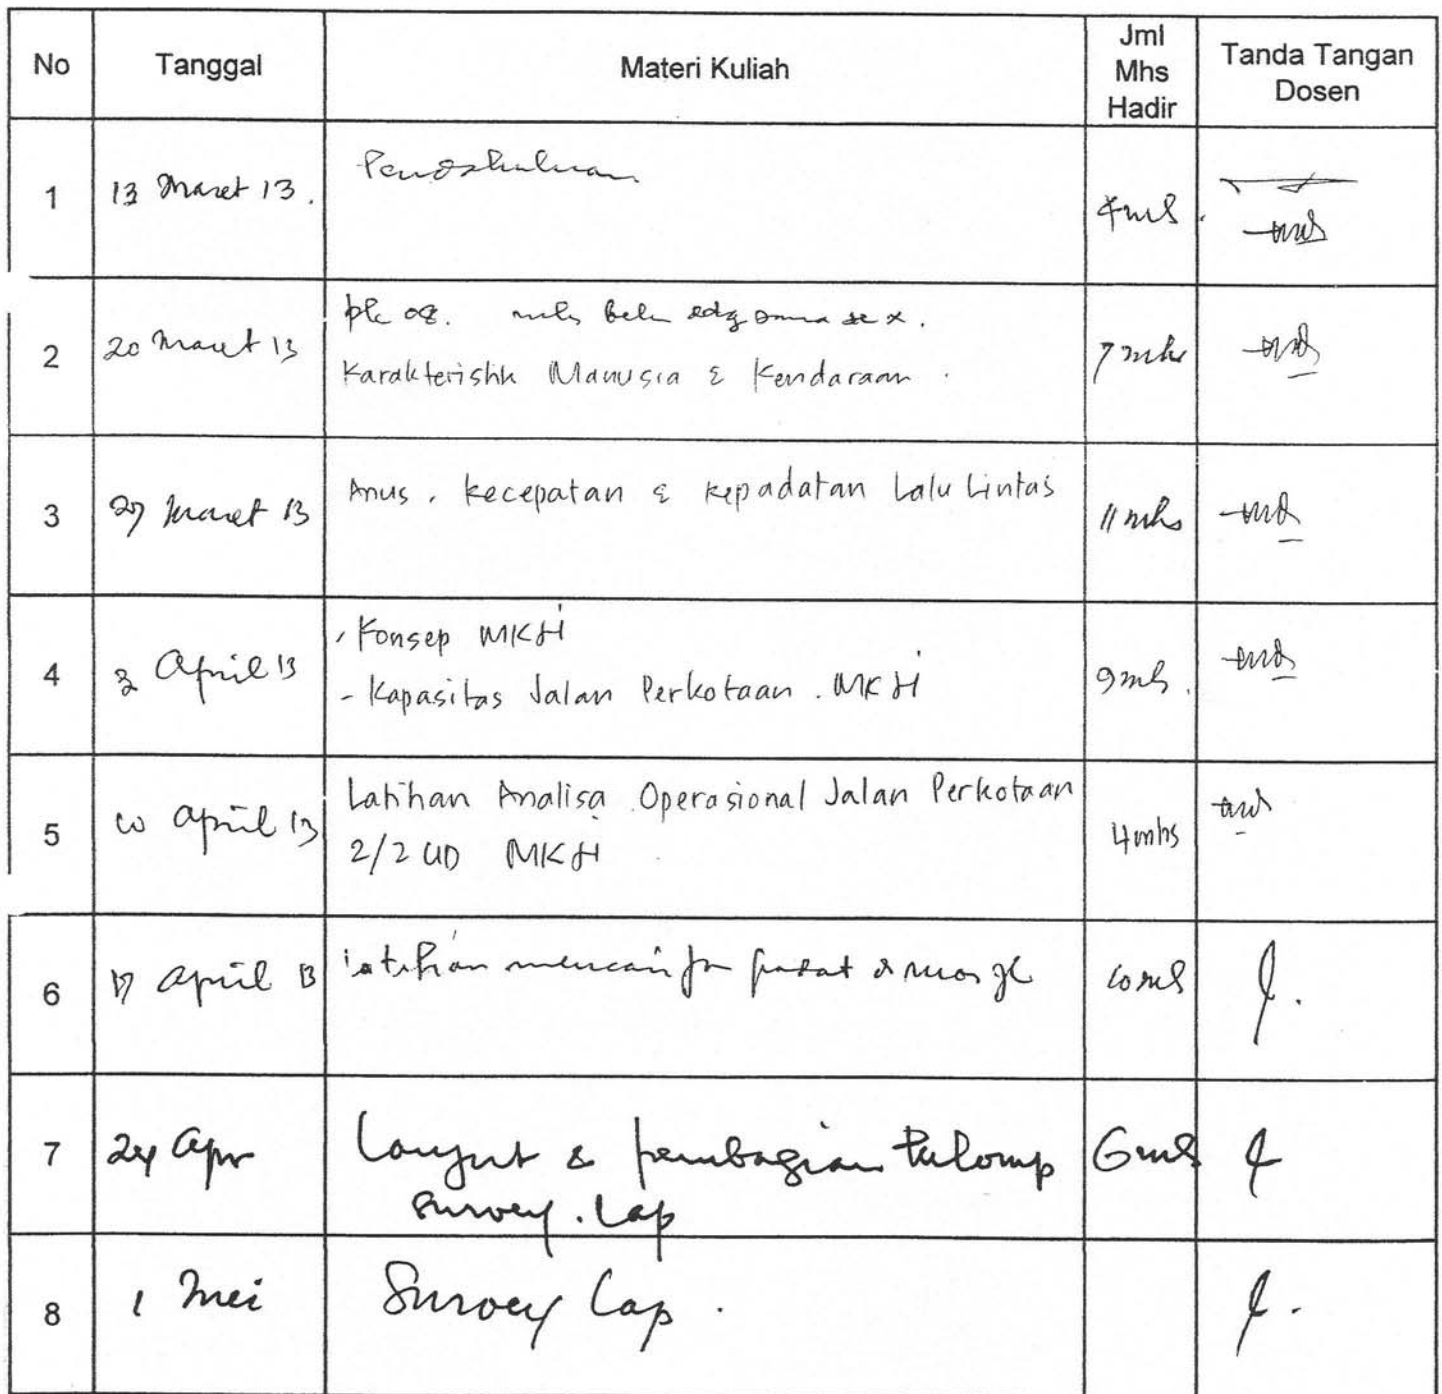 No Tanggal Materi Kuliah Jml Mhs Hadir Tanda Tangan Dosen
1 13 Maret 13. Pendahuluan 4 mhs.
2 20 Maret 13 7 mhs
Karakteristik Manusia & Kendaraan.
3 27 Maret 13 Arus, kecepatan & kepadatan Lalu Lintas 11 mhs
4 3 April 13 - Konsep MKJI 9 mhs.
- Kapasitas Jalan Perkotaan. MKJI
5 10 April 13 Latihan Analisa Operasional Jalan Perkotaan 4 mhs
2/2 UD MKJI
6 17 April 13 latihan mencari 10 mhs
7 24 Apr Lanjut & pembagian 6 mhs
survey. Lap
8 1 Mei Survey Lap.